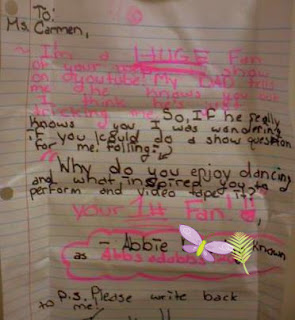 To:
Ms. Carmen,
I'm a HUGE Fan
of your show
on youtube! My DAD tells
me he knows you
I think he's just
tricking me. So, If he really
knows you I was wondering
if you could do a show question
for me. Folling:
Why do you enjoy dancing
and what inspired you to
perform and video tape it?
your 1# Fan!!
- Abbie known
as
P.S. Please write back
to me!